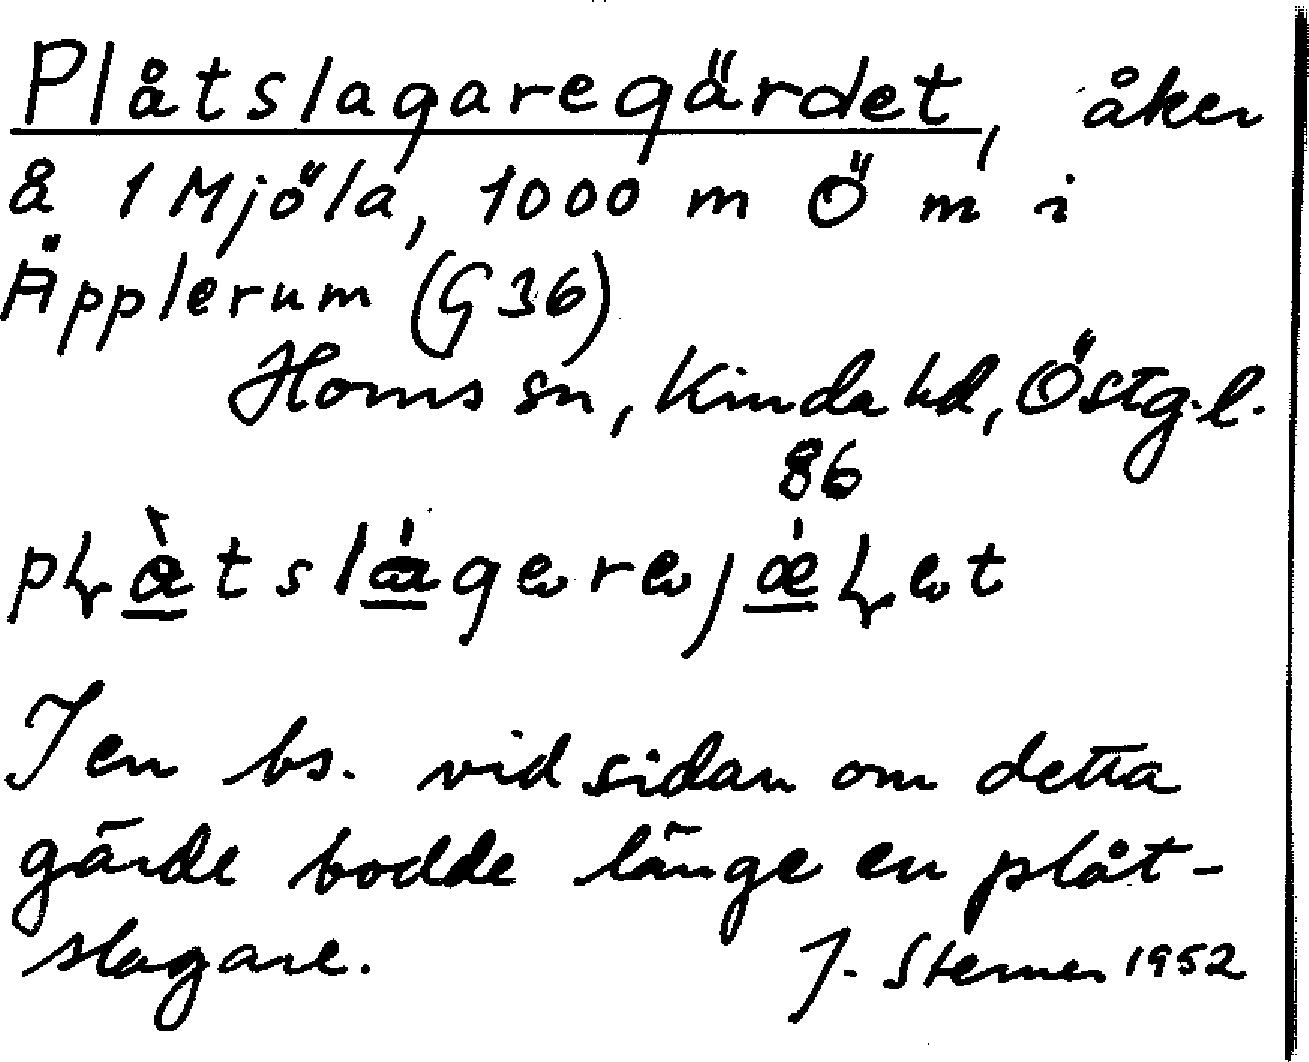 Plåtslagaregärdet, åker
å 1 Mjöla, 1000 m Ö m i
Äpplerum (G 36)
Horns sn, Kinda hd, Östg.l.
86
I en bs. vid sidan om detta
gärde bodde länge en plåt-
slagare. J. Sterner 1952